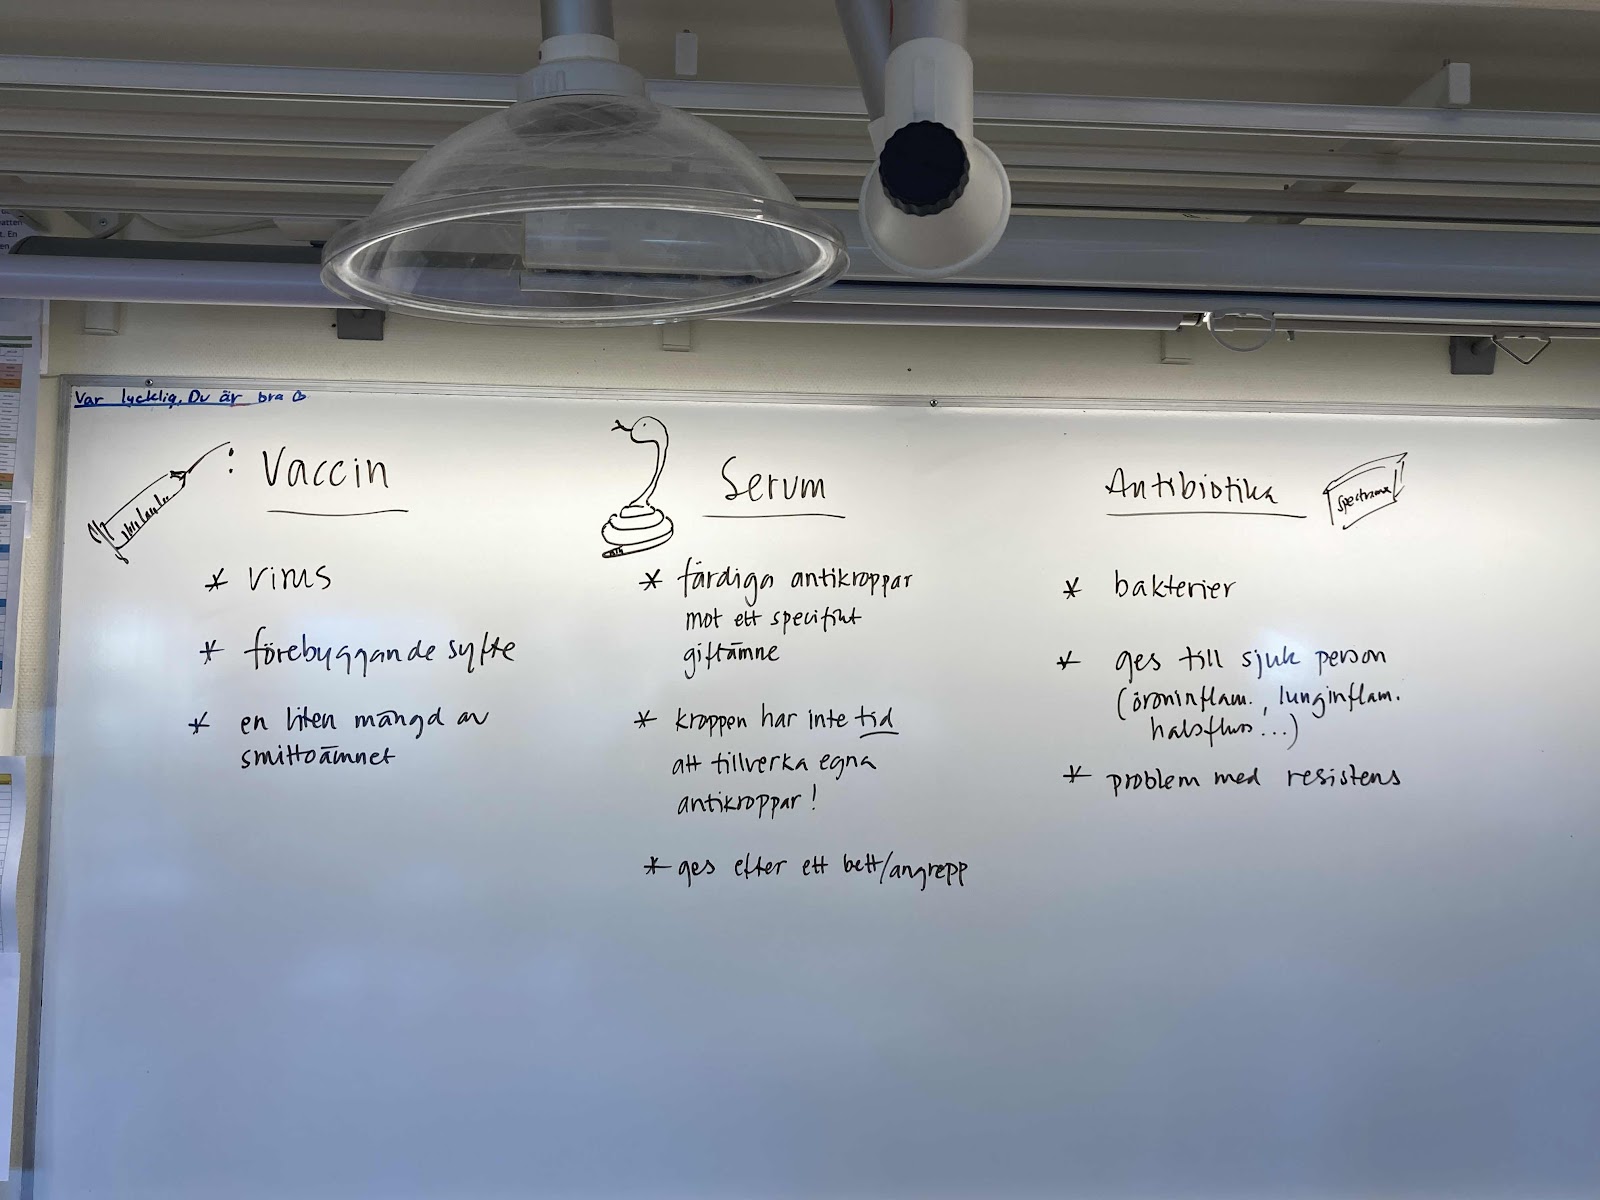 Var lycklig. Du är bra
Vaccin
* virus
* förebyggande syfte
* en liten mängd av
smittoämnet
Serum
* färdiga antikroppar
mot ett specifikt
giftämne
* kroppen har inte tid
att tillverka egna
antikroppar!
* ges efter ett bett/angrepp
Antibiotika
* bakterier
* ges till sjuk person
(öroninflam., lunginflam.
halsfluss...)
* problem med resistens